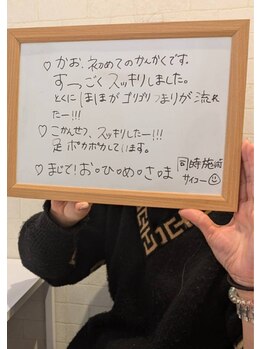 ♡ かお、初めてのかんかくです。
すっごくスッキリしました。
とくに ほほが ゴリゴリ つまりが 流れ
たー!!!
♡ こかんせつ、スッキリしたー!!!
足 ポカポカしています。
♡ まじで！お・ひ・め・さ・ま
同時施術
サイコー☺